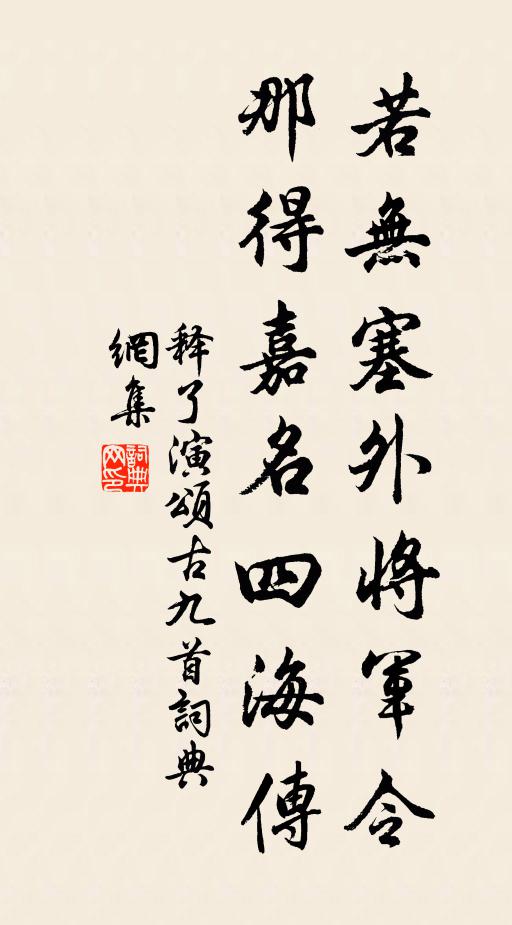 若無塞外將軍令
那得嘉名四海傳
释了演頌古九首詞典
網集
詞典
网印